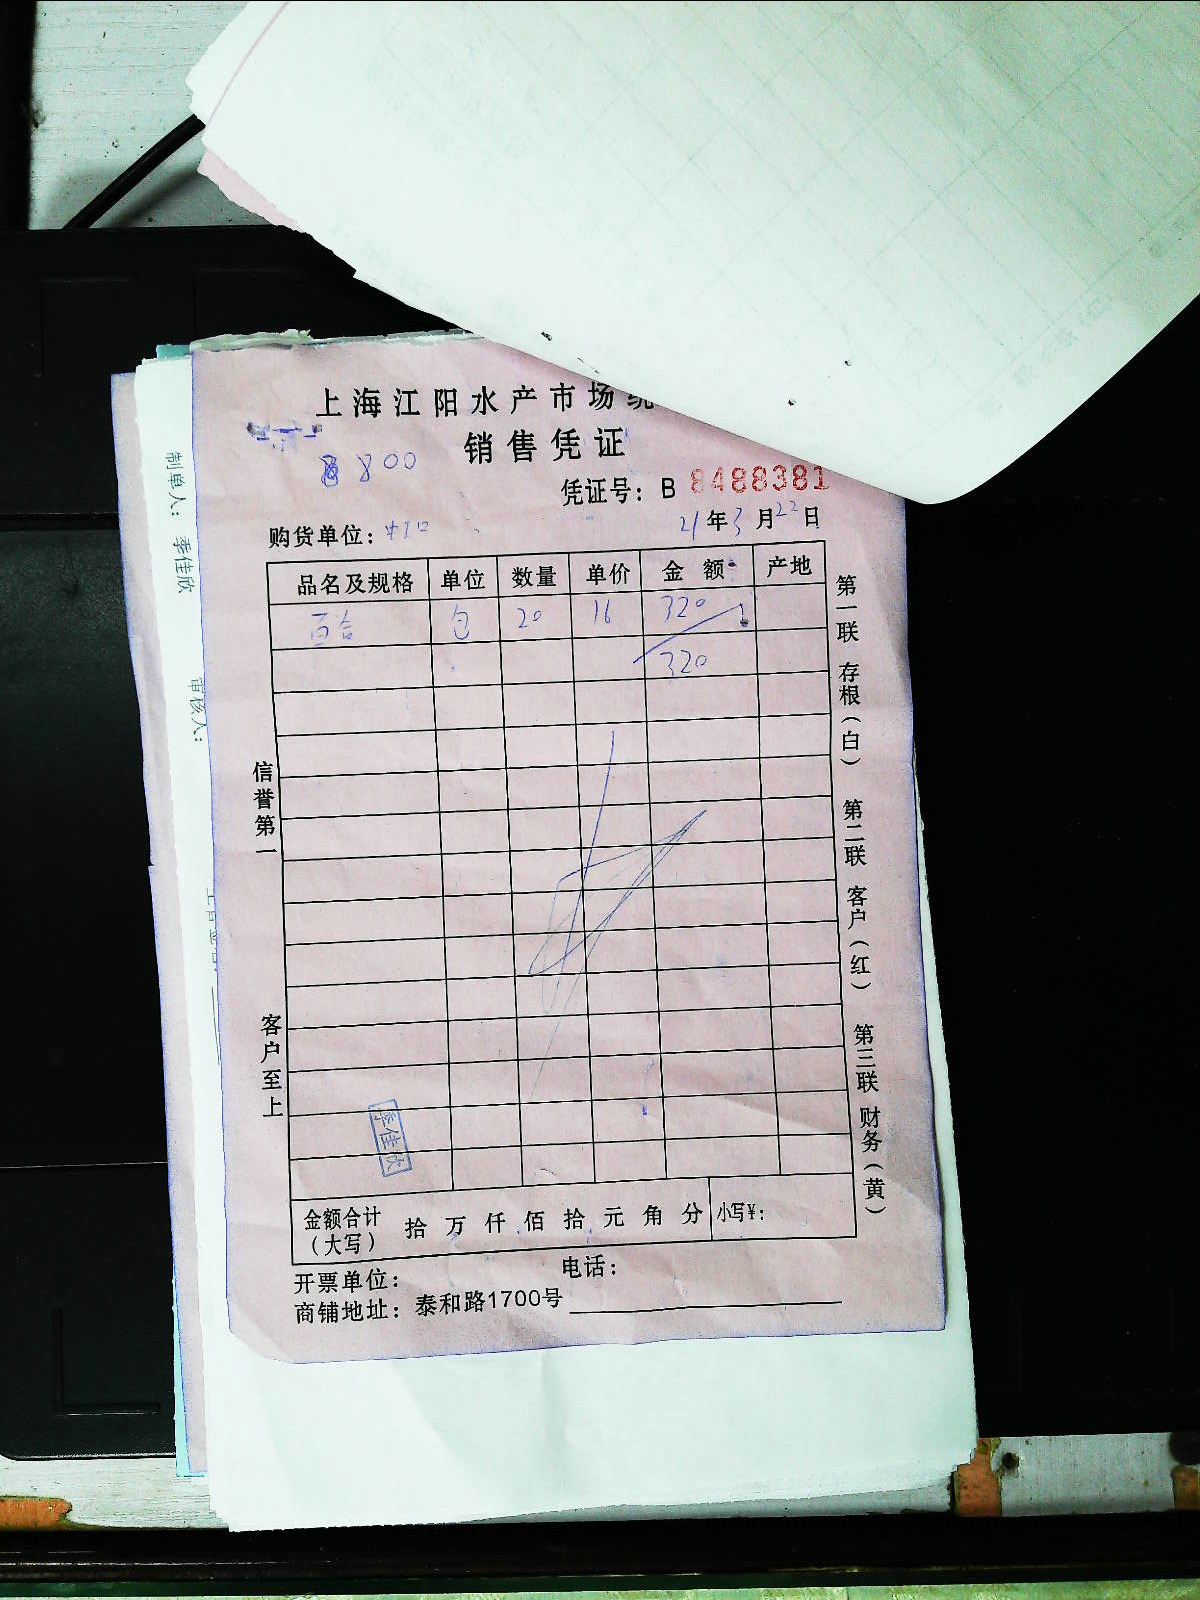 上海江阳水产市场统
销售凭证
8800
凭证号：B 8488381
购货单位：
21年3月22日
品名及规格 单位 数量 单价 金额 产地
百合 包 20 16 320
320
信誉第一
客户至上
第一联 存根（白） 第二联 客户（红） 第三联 财务（黄）
李佳欣
金额合计（大写） 拾 万 仟 佰 拾 元 角 分 小写¥：
开票单位： 电话：
商铺地址：泰和路1700号
制单人： 季佳欣
审核人：